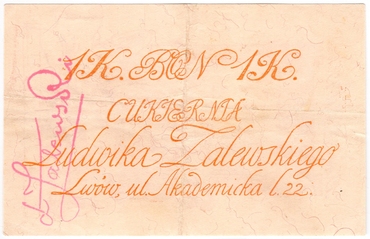 1K. BON 1K.
CUKIERNIA
Ludwika Zalewskiego
Lwów, ul. Akademicka l. 22.
L Zalewski